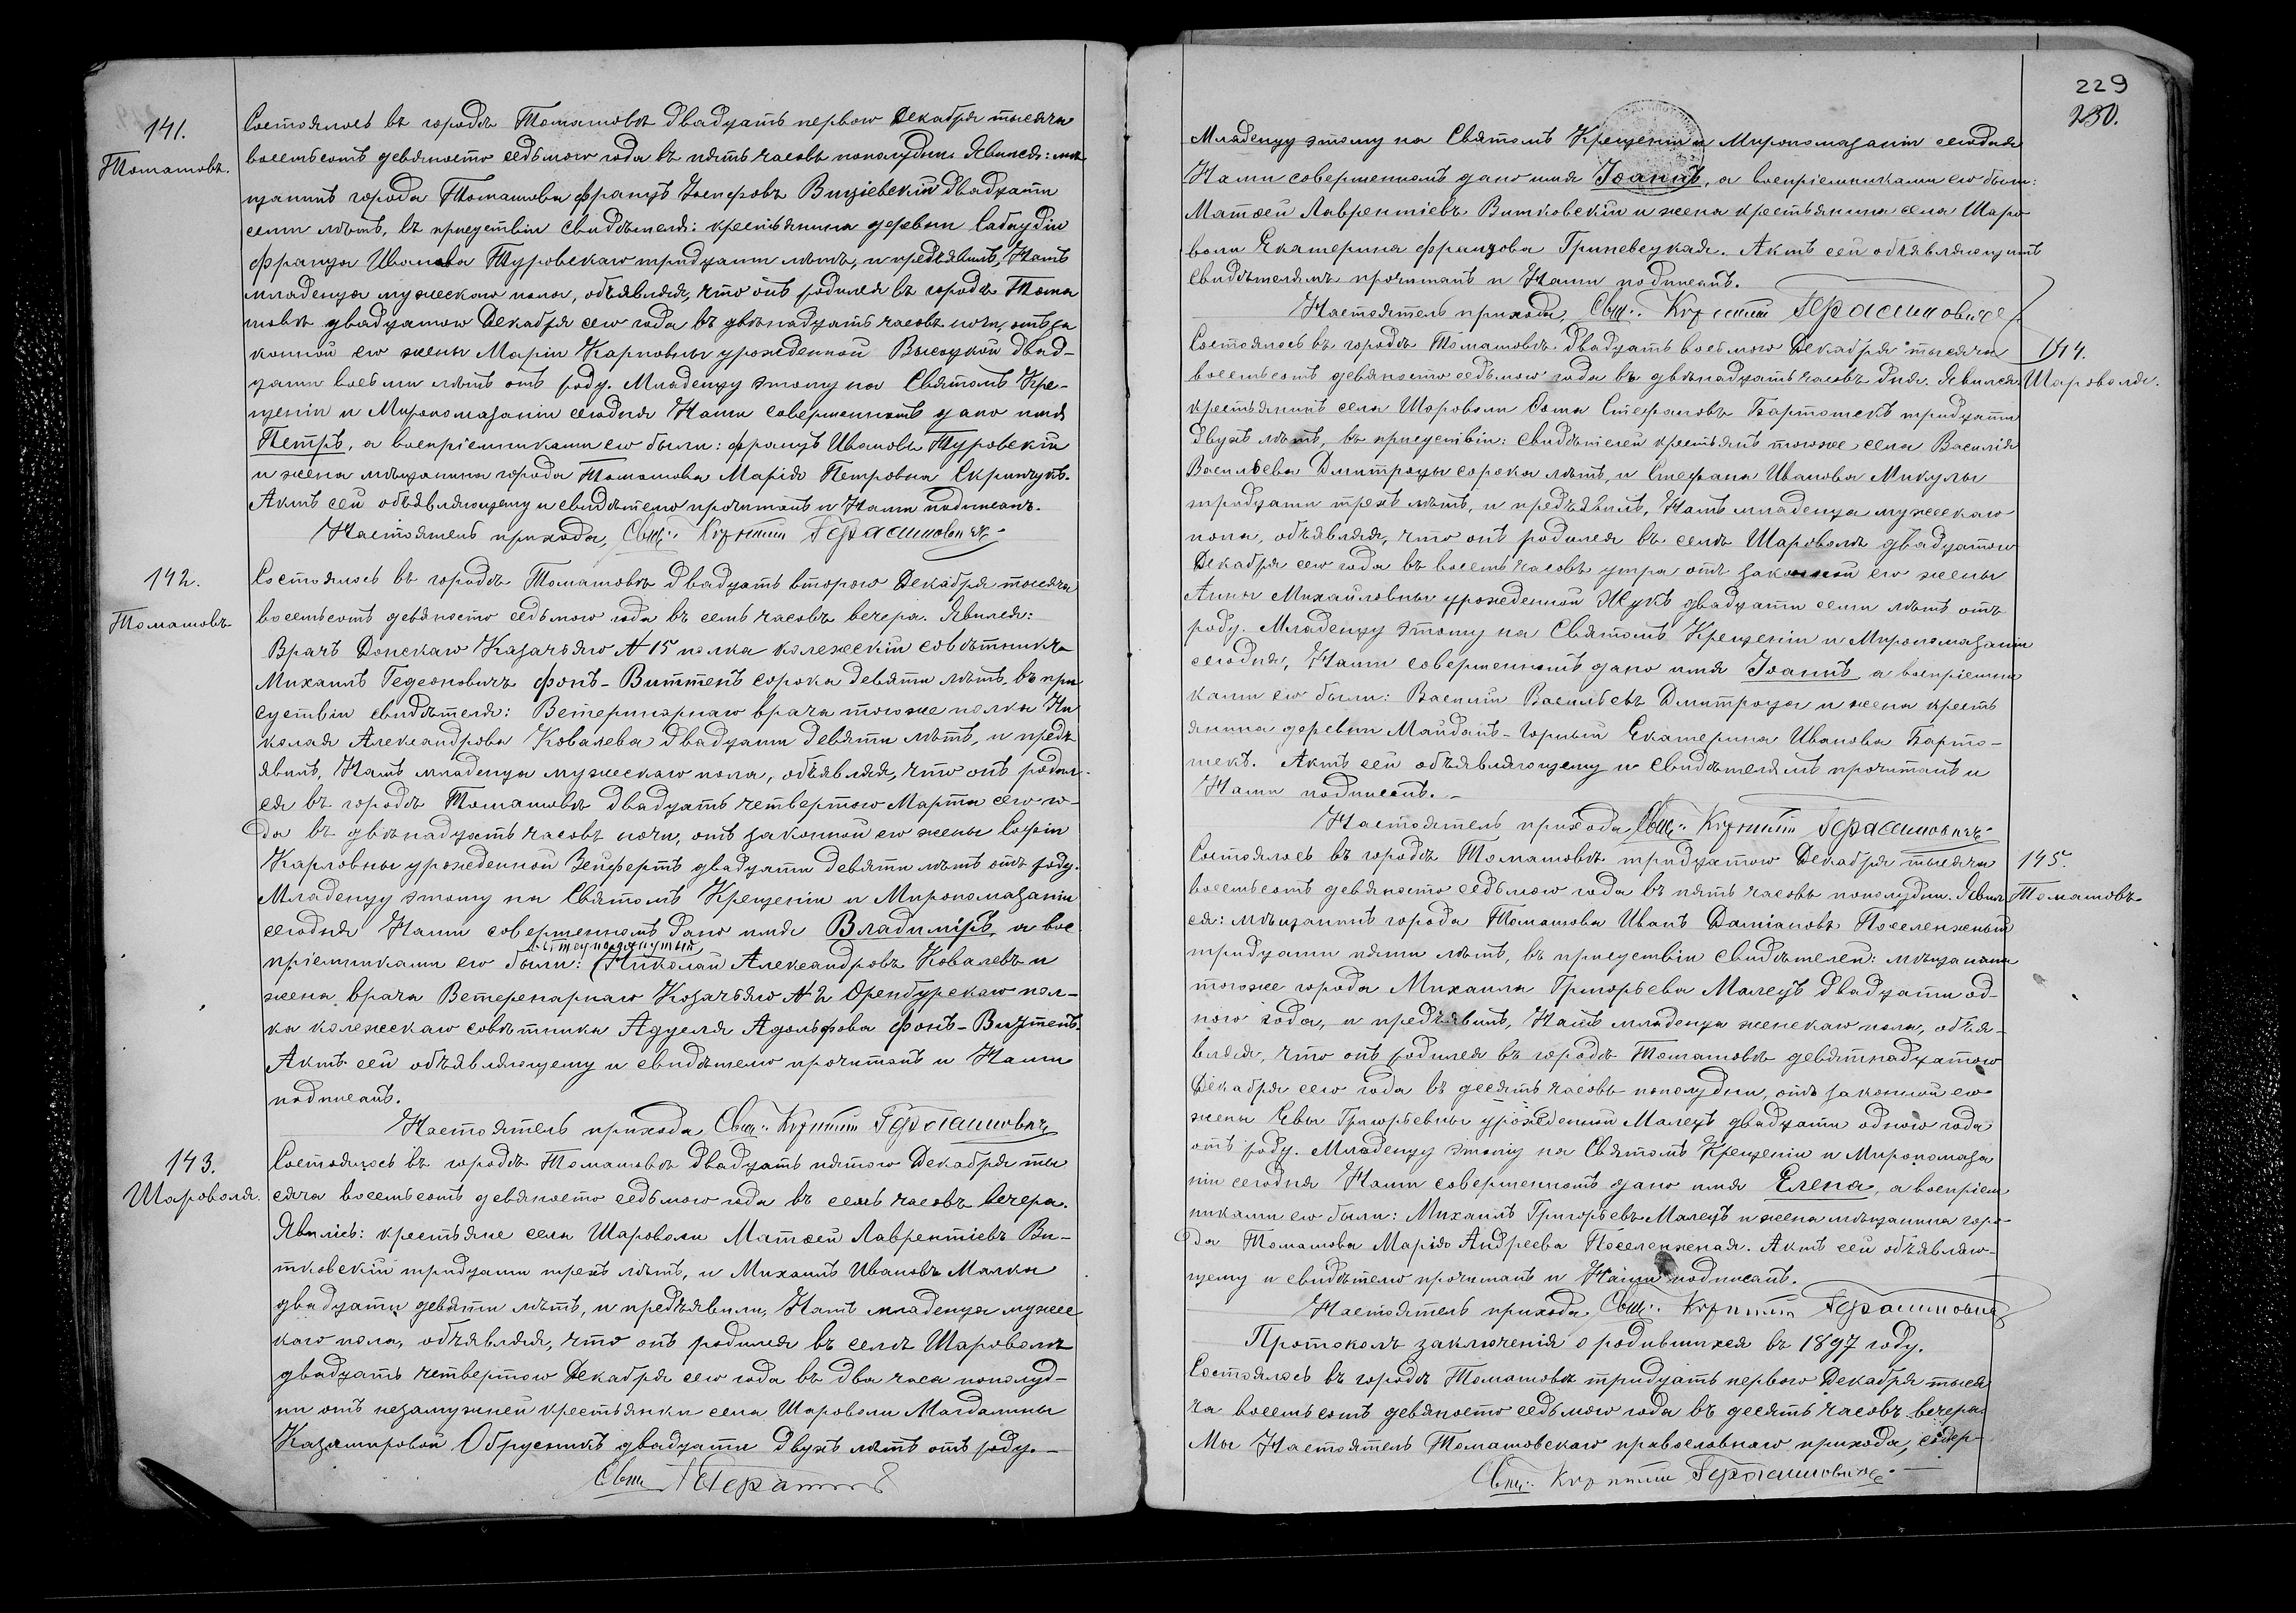 141.
Томашовъ.
Состоялось въ городѣ Томашовѣ двадцать перваго Декабря тысяча
восемьсотъ девяносто седьмого года въ пять часовъ пополудни. Явился: мѣ
щанинъ города Томашова Францъ Іосифовъ двадцати
семи лѣтъ, въ присутствіи свидѣтеля: крестьянина деревни Сабаудіи
Франца Иванова Туровскаго тридцати лѣтъ, и предъявилъ, Намъ
младенца мужескаго пола, объявляя, что онъ родился въ городѣ Тома
шовѣ двадцатаго Декабря сего года въ двѣнадцать часовъ ночи, отъ за
конной его жены Маріи Карповны урожденной Высоцкой двад-
цати восьми лѣтъ отъ роду. Младенцу этому на Святомъ Кре-
щеніи и Мѵропомазаніи сегодня Нами совершенномъ дано имя
Петръ, а воспріемниками его были: Францъ Ивановъ Туровскій
и жена мѣщанина города Томашова Марія Петровна Скринчукъ.
Актъ сей объявляющему и свидѣтелю прочитанъ и Нами подписанъ.
Настоятель прихода, Свщ: Герасимовичъ
142.
Томашовъ
Состоялось въ городѣ Томашовѣ двадцать второго Декабря тысяча
восемьсотъ девяносто седьмого года въ семь часовъ вечера. Явился:
Врачъ Донскаго Казачьяго № 15 полка колежскій совѣтникъ
Михаилъ Гедеоновичъ фонъ-Виттенъ сорока девяти лѣтъ, въ при
сутствіи свидѣтеля: Ветеринарнаго врача того же полка Ни
колая Александрова Ковалева двадцати девяти лѣтъ, и предъ
явилъ, Намъ младенца мужескаго пола, объявляя, что онъ родил-
ся въ городѣ Томашовѣ двадцать четвертаго Марта сего го-
да въ двѣнадцать часовъ ночи, отъ законной его жены Софіи
Карловны урожденной Зейфертъ двадцати девяти лѣтъ отъ роду.
Младенцу этому на Святомъ Крещеніи и Мѵропомазаніи
сегодня Нами совершенномъ дано имя Владиміръ, а вос
пріемниками его были: (Николай Александровъ Ковалевъ и
жена врача Ветеренарнаго Козачьяго № 2 Оренбурскаго пол-
ка колежскаго совѣтника Аделя Адольфова фонъ-Виттенъ.
Актъ сей объявляющему и свидѣтелю прочитанъ и Нами
подписанъ.
Настоятель прихода Свщ: Герасимовичъ
143.
Шароволя.
Состоялось въ городѣ Томашовѣ двадцать пятаго Декабря ты
сяча восемьсотъ девяносто седьмого года въ семь часовъ вечера.
Явились: крестьяне села Шароволи Матѳей Лаврентіевъ Ви-
тковскій тридцати трехъ лѣтъ, и Михаилъ Ивановъ Малки
двадцати девяти лѣтъ, и предъявили, Намъ младенца мужес
каго пола, объявляя, что онъ родился въ селѣ Шароволѣ
двадцать четвертаго Декабря сего года въ два часа пополуд-
ни отъ незамужней крестьянки села Шароволи Магдалины
Казимировой Обрусникъ двадцати двухъ лѣтъ отъ роду.—
Свщ
229
230.
Младенцу этому на Святомъ Крещеніи и Мѵропомазаніи сегодня
Нами совершенномъ дано имя Іоаннъ, а воспріемниками его были:
Матѳей Лаврентіевъ Витковскій и жена крестьянина села Шаро
воли Екатерина Францова Гриневецкая. Актъ сей объявляющимъ
свидѣтелямъ прочитанъ и Нами подписанъ.
Настоятель прихода, Свщ: Герасимовичъ
144.
Шароволя.
Состоялось въ городѣ Томашовѣ двадцать восьмого Декабря тысяча
восемьсотъ девяносто седьмого года въ двѣнадцать часовъ дня. Явился
крестьянинъ села Шароволи Ѳома Стефановъ Бартошекъ тридцати
двухъ лѣтъ, въ присутствіи: свидѣтелей крестьянъ того же села Василія
Васильева Дмитроцы сорока лѣтъ, и Стефана Иванова Микулы
тридцати трехъ лѣтъ, и предъявилъ, Намъ младенца мужескаго
пола, объявляя, что онъ родился въ селѣ Шароволѣ двадцатаго
Декабря сего года въ восемь часовъ утра отъ законной его жены
Анны Михайловны урожденной Жукъ двадцати семи лѣтъ отъ
роду. Младенцу этому на Святомъ Крещеніи и Мѵропомазаніи
сегодня, Нами совершенномъ дано имя Іоаннъ а воспріемни
ками его были: Василій Васильевъ Дмитроца и жена кресть
янина деревни Майданъ-Горный Екатерина Иванова Барто-
шекъ. Актъ сей объявляющему и свидѣтелямъ прочитанъ и
Нами подписанъ.-
Настоятель прихода Свщ: Герасимовичъ
145.
Томашовъ
Состоялось въ городѣ Томашовѣ тридцатаго Декабря тысяча
восемьсотъ девяносто седьмого года въ пять часовъ пополудни. Явил
ся: мѣщанинъ города Томашова Иванъ Даміановъ Поселенжный
тридцати пяти лѣтъ, въ присутствіи свидѣтелей: мѣщанина
того же города Михаила Григорьева Малецъ двадцати од-
ного года, и предъявилъ, Намъ младенца женскаго пола, объя-
вляя, что онъ родился въ городѣ Томашовѣ девятнадцатаго
Декабря сего года въ десять часовъ пополудни, отъ законной его
жены Евы Григорьевны урожденной Малецъ двадцати одного года
отъ роду. Младенцу этому на Святомъ Крещеніи и Мѵропомаза
ніи сегодня Нами совершенномъ дано имя Елена, а воспріем
никами его были: Михаилъ Григорьевъ Малецъ и жена мѣщанина горо-
да Томашова Марія Андреева Поселенжная. Актъ сей объявляю-
щему и свидѣтелю прочитанъ и Нами подписанъ.
Настоятель прихода. Свщ: Герасимовичъ
Протоколъ заключенія о родившихся въ 1897 году.
Состоялось въ городѣ Томашовѣ тридцать перваго Декабря тыся
ча восемьсотъ девяносто седьмого года въ десять часовъ вечера
Мы Настоятель Томашовскаго православнаго прихода, содер-
Свщ: Герасимовичъ